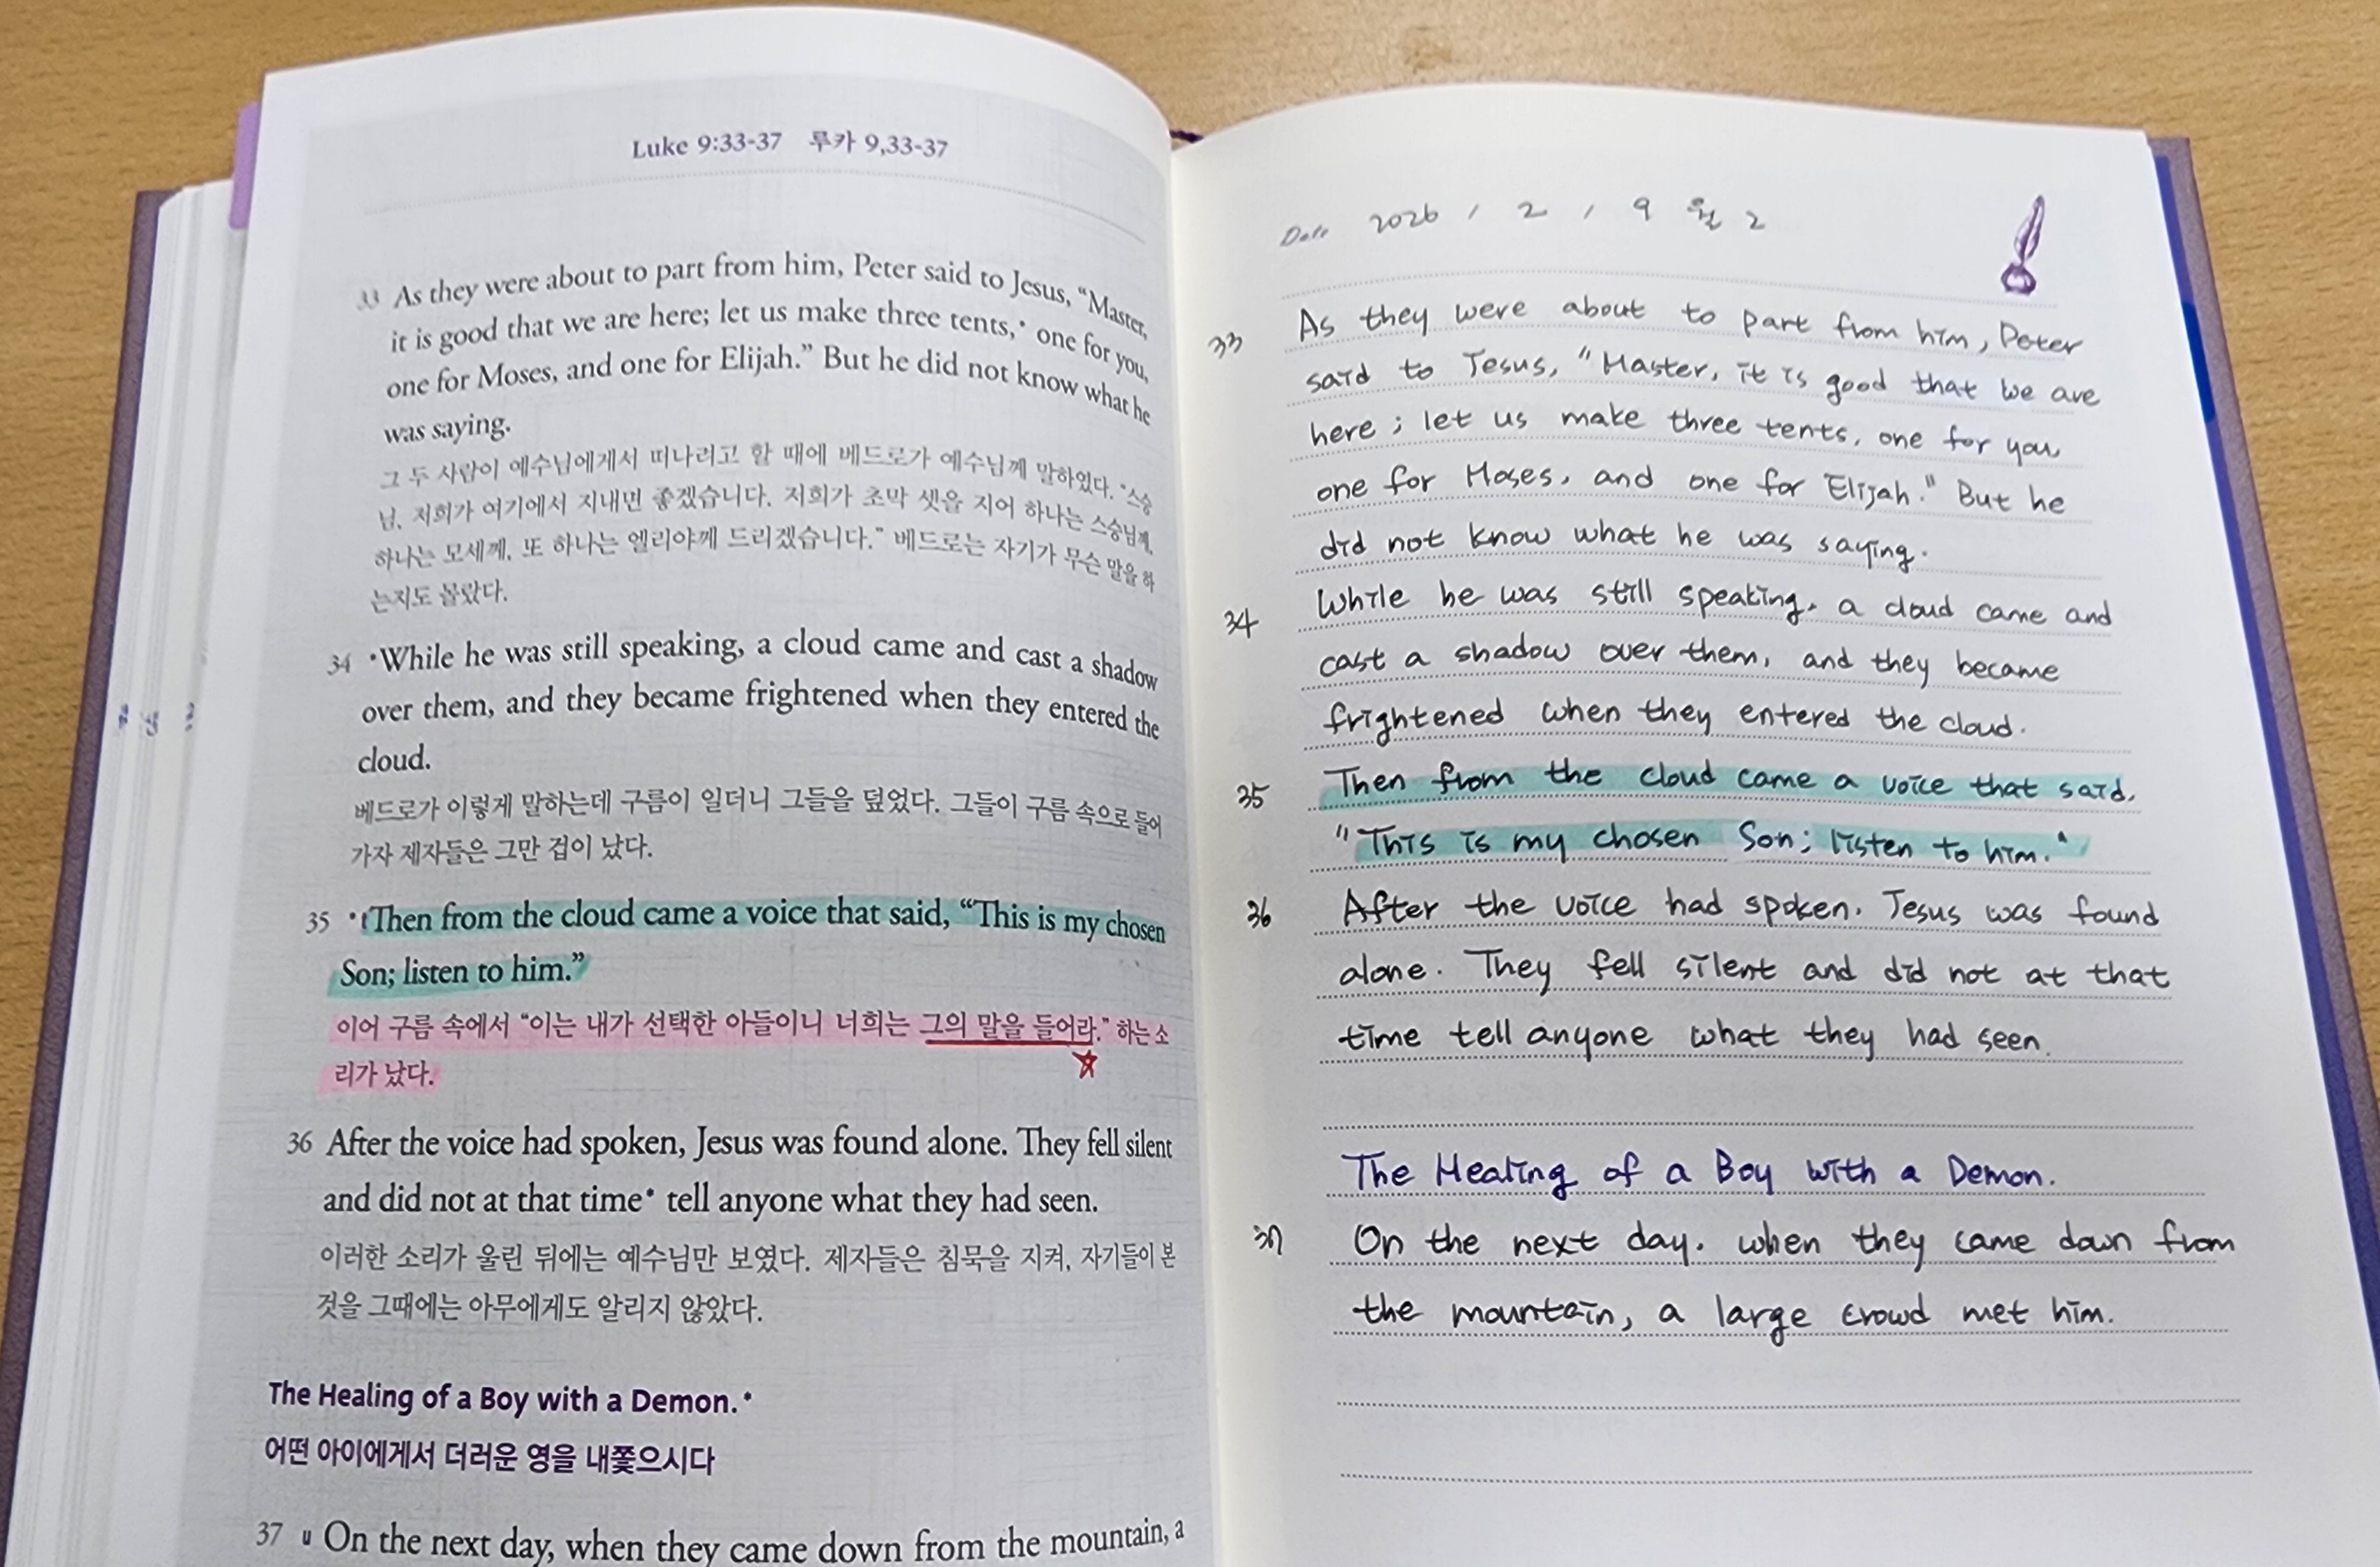 Luke 9:33-37 루카 9,33-37
33 As they were about to part from him, Peter said to Jesus, “Master,
it is good that we are here; let us make three tents,* one for you,
one for Moses, and one for Elijah.” But he did not know what he
was saying.
그 두 사람이 예수님에게서 떠나려고 할 때에 베드로가 예수님께 말하였다. “스승
님, 저희가 여기에서 지내면 좋겠습니다. 저희가 초막 셋을 지어 하나는 스승님께,
하나는 모세께, 또 하나는 엘리야께 드리겠습니다.” 베드로는 자기가 무슨 말을 하
는지도 몰랐다.
34 *While he was still speaking, a cloud came and cast a shadow
over them, and they became frightened when they entered the
cloud.
베드로가 이렇게 말하는데 구름이 일더니 그들을 덮었다. 그들이 구름 속으로 들어
가자 제자들은 그만 겁이 났다.
35 * t Then from the cloud came a voice that said, “This is my chosen
Son; listen to him.”
이어 구름 속에서 “이는 내가 선택한 아들이니 너희는 그의 말을 들어라.” 하는 소
리가 났다.
36 After the voice had spoken, Jesus was found alone. They fell silent
and did not at that time* tell anyone what they had seen.
이러한 소리가 울린 뒤에는 예수님만 보였다. 제자들은 침묵을 지켜, 자기들이 본
것을 그때에는 아무에게도 알리지 않았다.
The Healing of a Boy with a Demon.*
어떤 아이에게서 더러운 영을 내쫓으시다
37 u On the next day, when they came down from the mountain, a
Date 2026 / 2 / 9 월 2
33 As they were about to part from him, Peter
said to Jesus, "Master, it is good that we are
here; let us make three tents, one for you,
one for Moses, and one for Elijah." But he
did not know what he was saying.
34 While he was still speaking, a cloud came and
cast a shadow over them, and they became
frightened when they entered the cloud.
35 Then from the cloud came a voice that said,
"This is my chosen Son; listen to him."
36 After the voice had spoken, Jesus was found
alone. They fell silent and did not at that
time tell anyone what they had seen.
The Healing of a Boy with a Demon.
37 On the next day, when they came down from
the mountain, a large crowd met him.